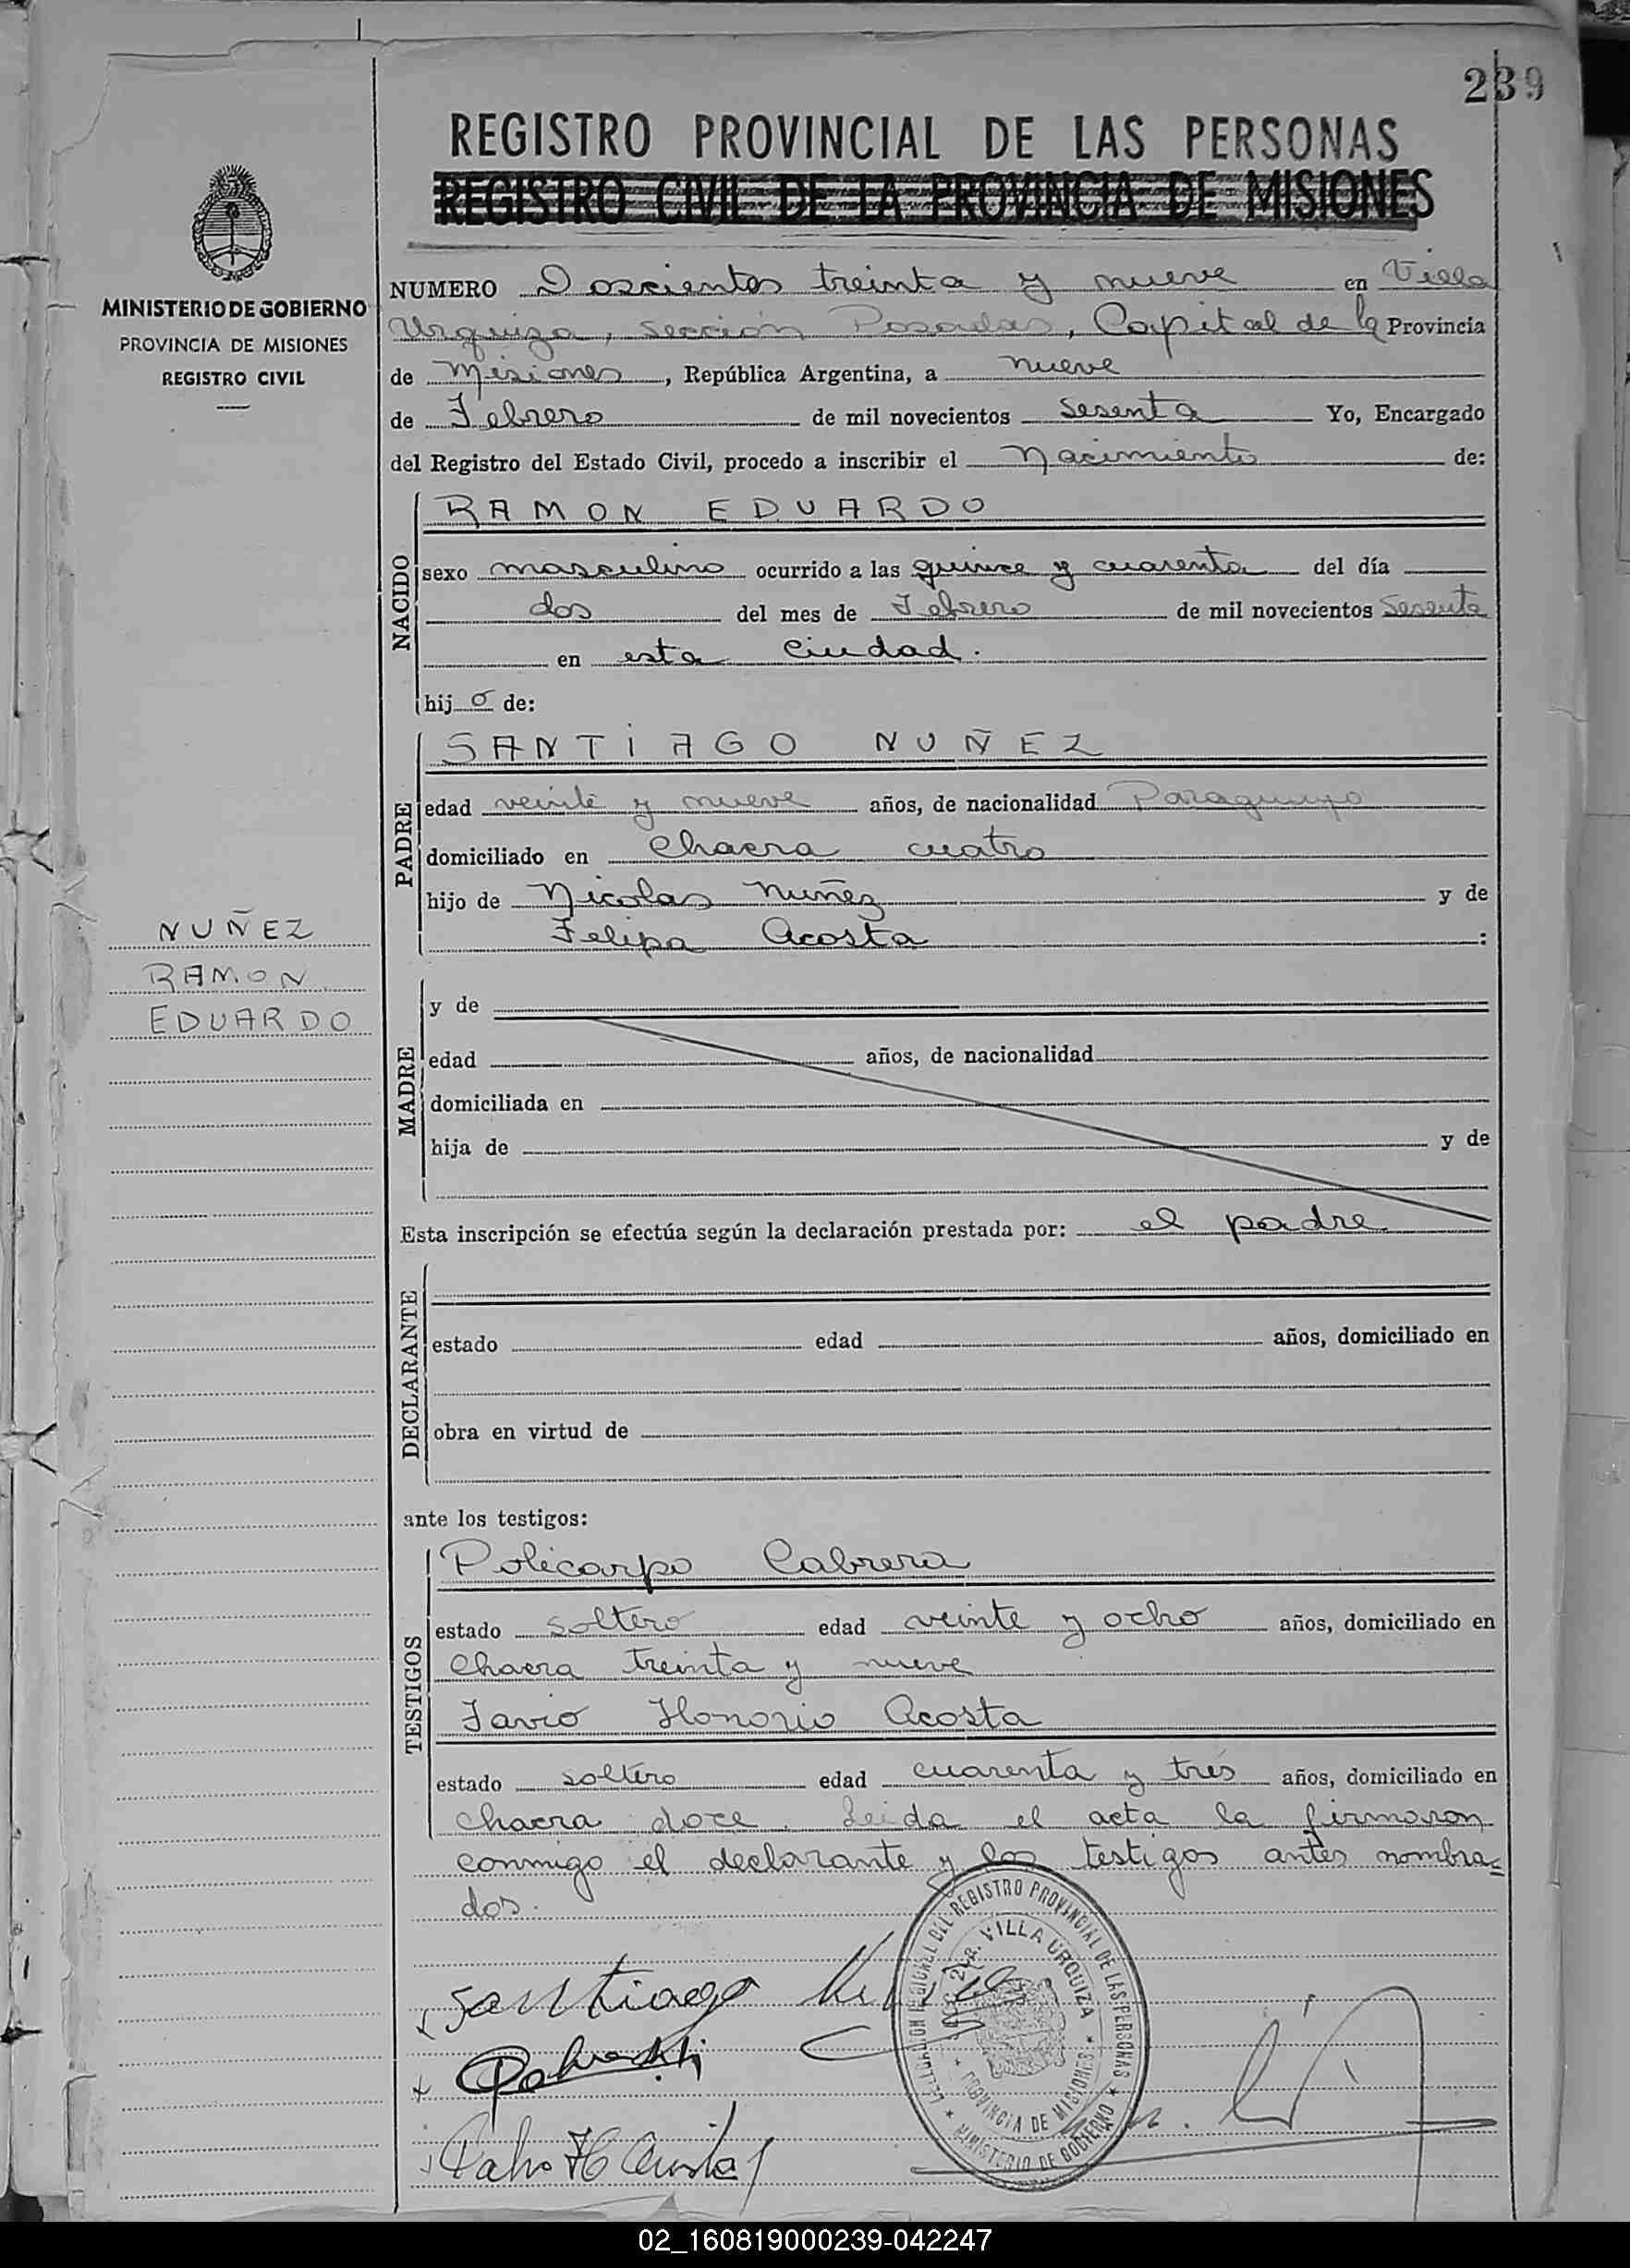 239
REGISTRO PROVINCIAL DE LAS PERSONAS
REGISTRO CIVIL DE LA PROVINCIA DE MISIONES
MINISTERIO DE GOBIERNO
PROVINCIA DE MISIONES
REGISTRO CIVIL
NUMERO Doscientos treinta y nueve en Villa
Urquiza, Sección Posadas, Capital de la Provincia
de Misiones, República Argentina, a nueve
de Febrero de mil novecientos Sesenta Yo, Encargado
del Registro del Estado Civil, procedo a inscribir el Nacimiento de:
NACIDO
RAMON EDUARDO
sexo masculino ocurrido a las quince y cuarenta del día
dos del mes de Febrero de mil novecientos Sesenta
en esta Ciudad.
hijo de:
PADRE
SANTIAGO NUÑEZ
edad veinte y nueve años, de nacionalidad Paraguayo
domiciliado en Chacra cuatro
hijo de Nicolas Nuñez y de
Felipa Acosta :
NUÑEZ
RAMON
EDUARDO
MADRE
y de
edad años, de nacionalidad
domiciliada en
hija de y de
Esta inscripción se efectúa según la declaración prestada por: el padre
DECLARANTE
estado edad años, domiciliado en
obra en virtud de
ante los testigos:
TESTIGOS
Policarpo Cabrera
estado soltero edad veinte y ocho años, domiciliado en
Chacra treinta y nueve
Honorio Acosta
estado soltero edad cuarenta y tres años, domiciliado en
chacra doce. Leida el acta la firmaron
conmigo el declarante y los testigos antes nombra=
dos.
Santiago
DEL REGISTRO PROVINCIAL DE LAS PERSONAS
VILLA URQUIZA
PROVINCIA DE MISIONES
MINISTERIO DE GOBIERNO
02_160819000239-042247